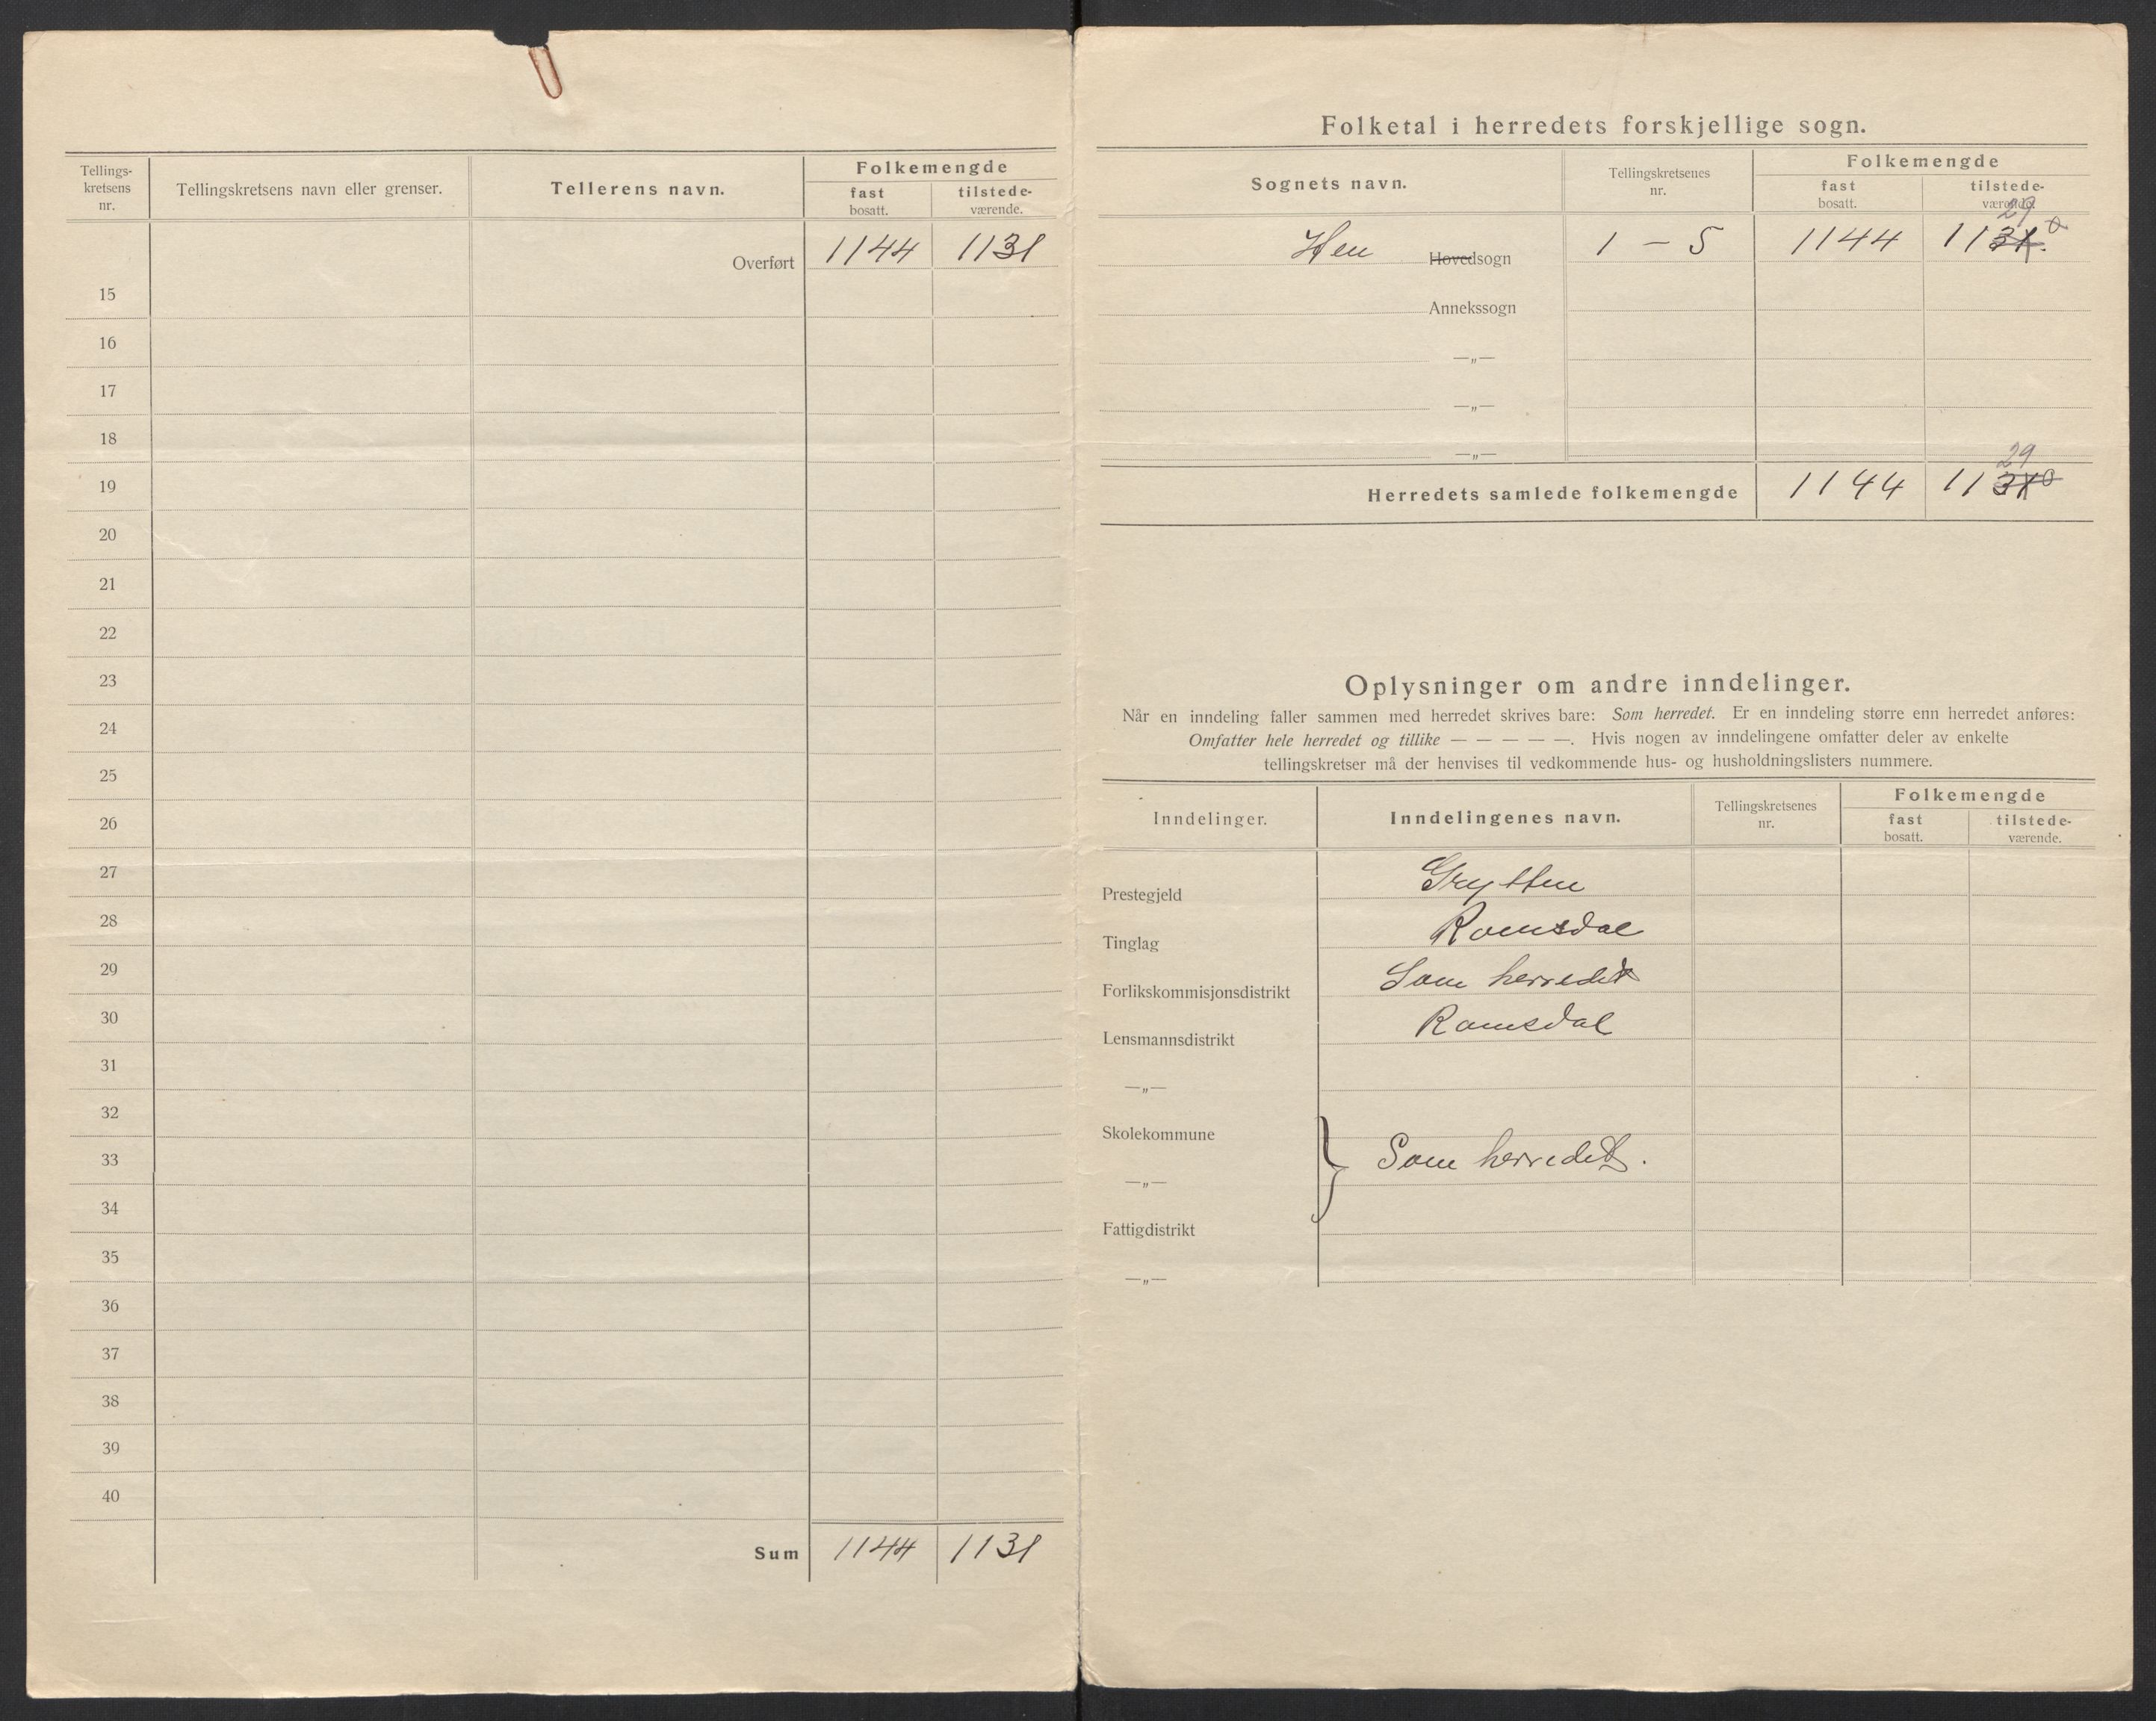 Tellings-
kretsens
nr.
Tellingskretsens navn eller grenser.
Tellerens navn.
Folkemengde
fast
bosatt.
tilstede-
værende.
Overført 1144 1131
15
16
17
18
19
20
21
22
23
24
25
26
27
28
29
30
31
32
33
34
35
36
37
38
39
40
Sum 1144 1131
Folketal i herredets forskjellige sogn.
Sognets navn.
Tellingskretsenes
nr.
Folkemengde
fast
bosatt.
tilstede-
værende.
29
Hen Hovedsogn 1 - 5 1144 1131 0
Annekssogn
—„—
—„—
—„—
29
Herredets samlede folkemengde 1144 1131 0
Oplysninger om andre inndelinger.
Når en inndeling faller sammen med herredet skrives bare: Som herredet. Er en inndeling større enn herredet anføres:
Omfatter hele herredet og tillike — — — — —. Hvis nogen av inndelingene omfatter deler av enkelte
tellingskretser må der henvises til vedkommende hus- og husholdningslisters nummere.
Inndelinger.
Inndelingenes navn.
Tellingskretsenes
nr.
Folkemengde
fast
bosatt.
tilstede-
værende.
Prestegjeld Grytten
Tinglag Romsdal
Forlikskommisjonsdistrikt Som herredet
Lensmannsdistrikt Romsdal
—„—
Skolekommune
Som herredet.
—„—
Fattigdistrikt
—„—